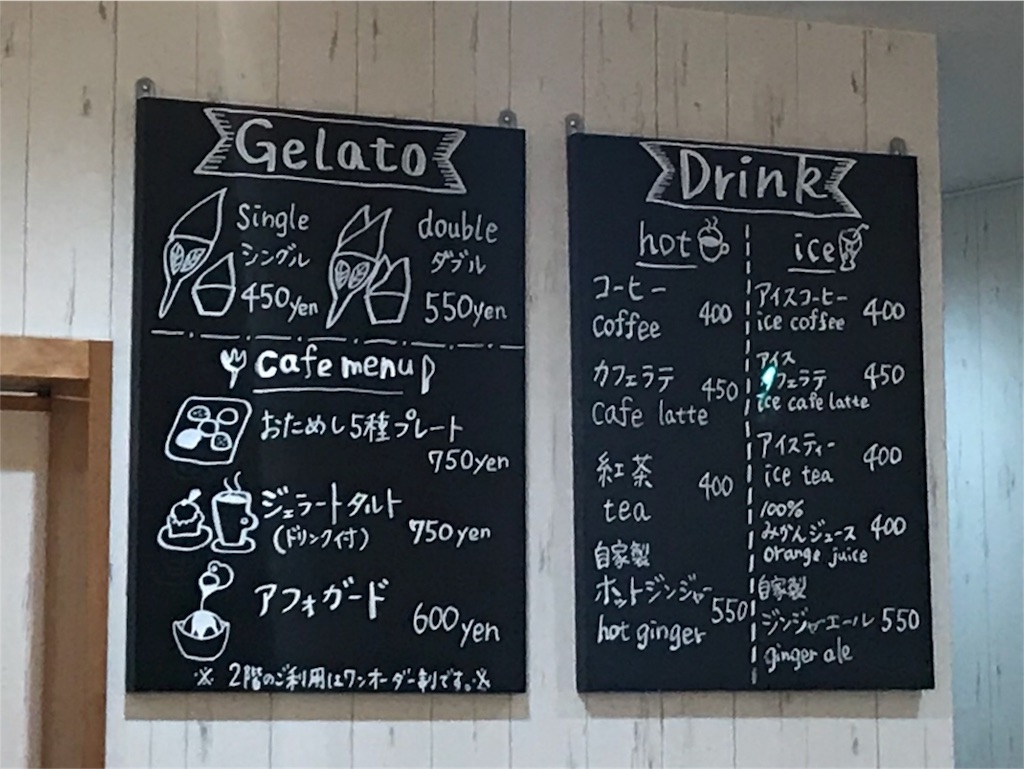 Gelato
Single
シングル
450yen
double
ダブル
550yen
cafe menu
おためし5種プレート
750yen
ジェラートタルト
(ドリンク付)
750yen
アフォガード
600yen
※ 2階のご利用はワンオーダー制です。※
Drink
hot
コーヒー
coffee
400
カフェラテ
cafe latte
450
紅茶
tea
400
自家製
ホットジンジャー
hot ginger
550
ice
アイスコーヒー
ice coffee
400
アイス
カフェラテ
ice cafe latte
450
アイスティー
ice tea
400
100%
みかんジュース
orange juice
400
自家製
ジンジャーエール
ginger ale
550